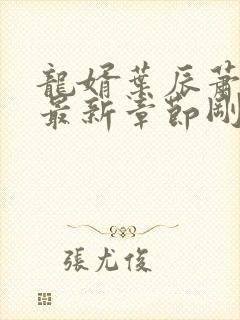 龍婿葉辰蕭
最新章節剛
張尤俊